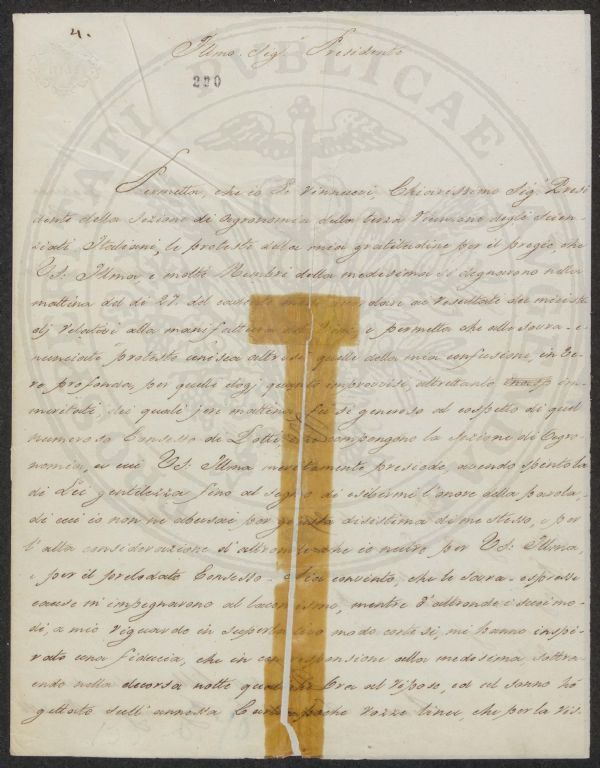 4.
Illmo. Sigr. Presidente
230
Permetta, che io Le rinnuovi, Chiarissimo Sigr. Presi
dente della Sezione di Agronomia della terza Riunione degli Scien
ziati Italiani, le proteste della mia gratitudine per il pregio, che
VS: Illma, e molti Membri della medesima si degnarono nella
mattina del dì 27 del cadente mese dare ai resultati dei miei st
dj relativi alla manifattura dei Vini, e permetta che alle sovra-e
nunciate proteste unisca altresì quelle della mia confusione, in ve
ro profonda, per quelli elogj quanto improvvisi, altrettanto im
meritati, dei quali jeri mattina fù sì generoso al cospetto di quel
numeroso Consesso di Dotti che compongono la Sezione di Agro
nomia, a cui VS: Illma meritamente presiede, avendo spinto la
di Lei gentilezza fino al segno di esibirmi l'onore della parola,
di cui io non ne abusai per giusta disistima di me stesso, e per
l'alta considerazione d'altronde che io nutro per VS: Illma,
e per il prelodato Consesso - Sia convinto, che le sovra-espresse
cause m'impegnarono al laconismo, mentre d'altronde i suoi mo
di, a mio riguardo in superlativo modo cortesi, mi hanno inspi
rato una fiducia, che in corrispensione alla medesima, sottra
endo nella decorsa notte qualche Ora al riposo, ed al sonno hò
gettato sull'annessa Carta poche rozze linee, che per la ris-